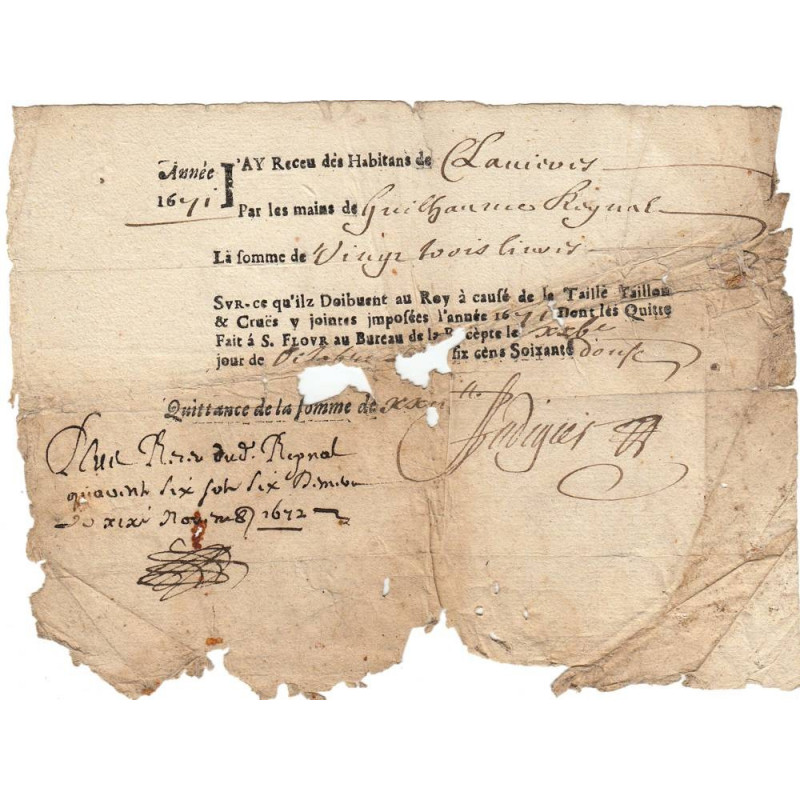 Année
1671
J'AY Receu dés Habitans de Clavieres
Par les mains de Guilhaume Reynal
La somme de Vingt trois livres
SVR-ce qu'ilz Doibuent au Roy à causé de la Taillè Taillon
& Cruës y jointes jmposées l'année 1671 Dont lés Quitte
Fait á S. FLOVR au Bureau de la Recèpte le xxbe
jour de Octobre six cens Soixante douse
Quittance de la somme de xxiii tt.
Plus Receu dud. Reynal
quarent six sols six deniers
xixe Novem 1672